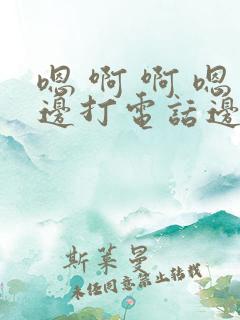 嗯 啊 啊 嗯
邊打電話邊
斯萊曼
未经同意禁止转载